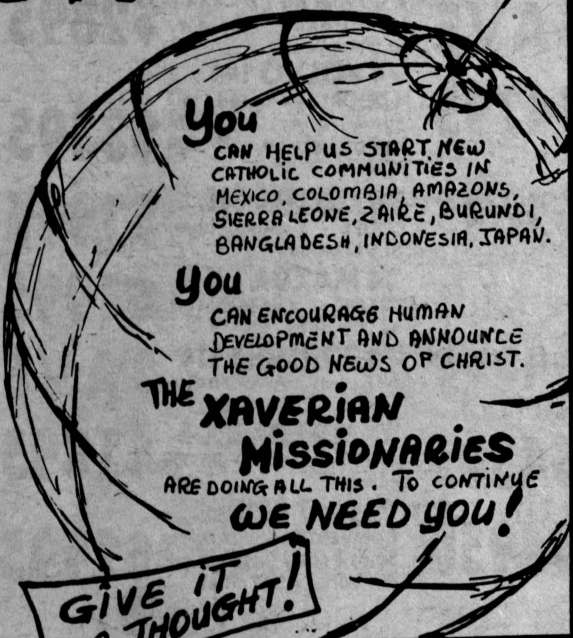 You
CAN HELP US START NEW
CATHOLIC COMMUNITIES IN
MEXICO, COLOMBIA, AMAZONS,
SIERRA LEONE, ZAIRE, BURUNDI,
BANGLADESH, INDONESIA, JAPAN.
You
CAN ENCOURAGE HUMAN
DEVELOPMENT AND ANNOUNCE
THE GOOD NEWS OF CHRIST.
THE XAVERIAN
MISSIONARIES
ARE DOING ALL THIS. TO CONTINUE
WE NEED YOU!
GIVE IT
THOUGHT!